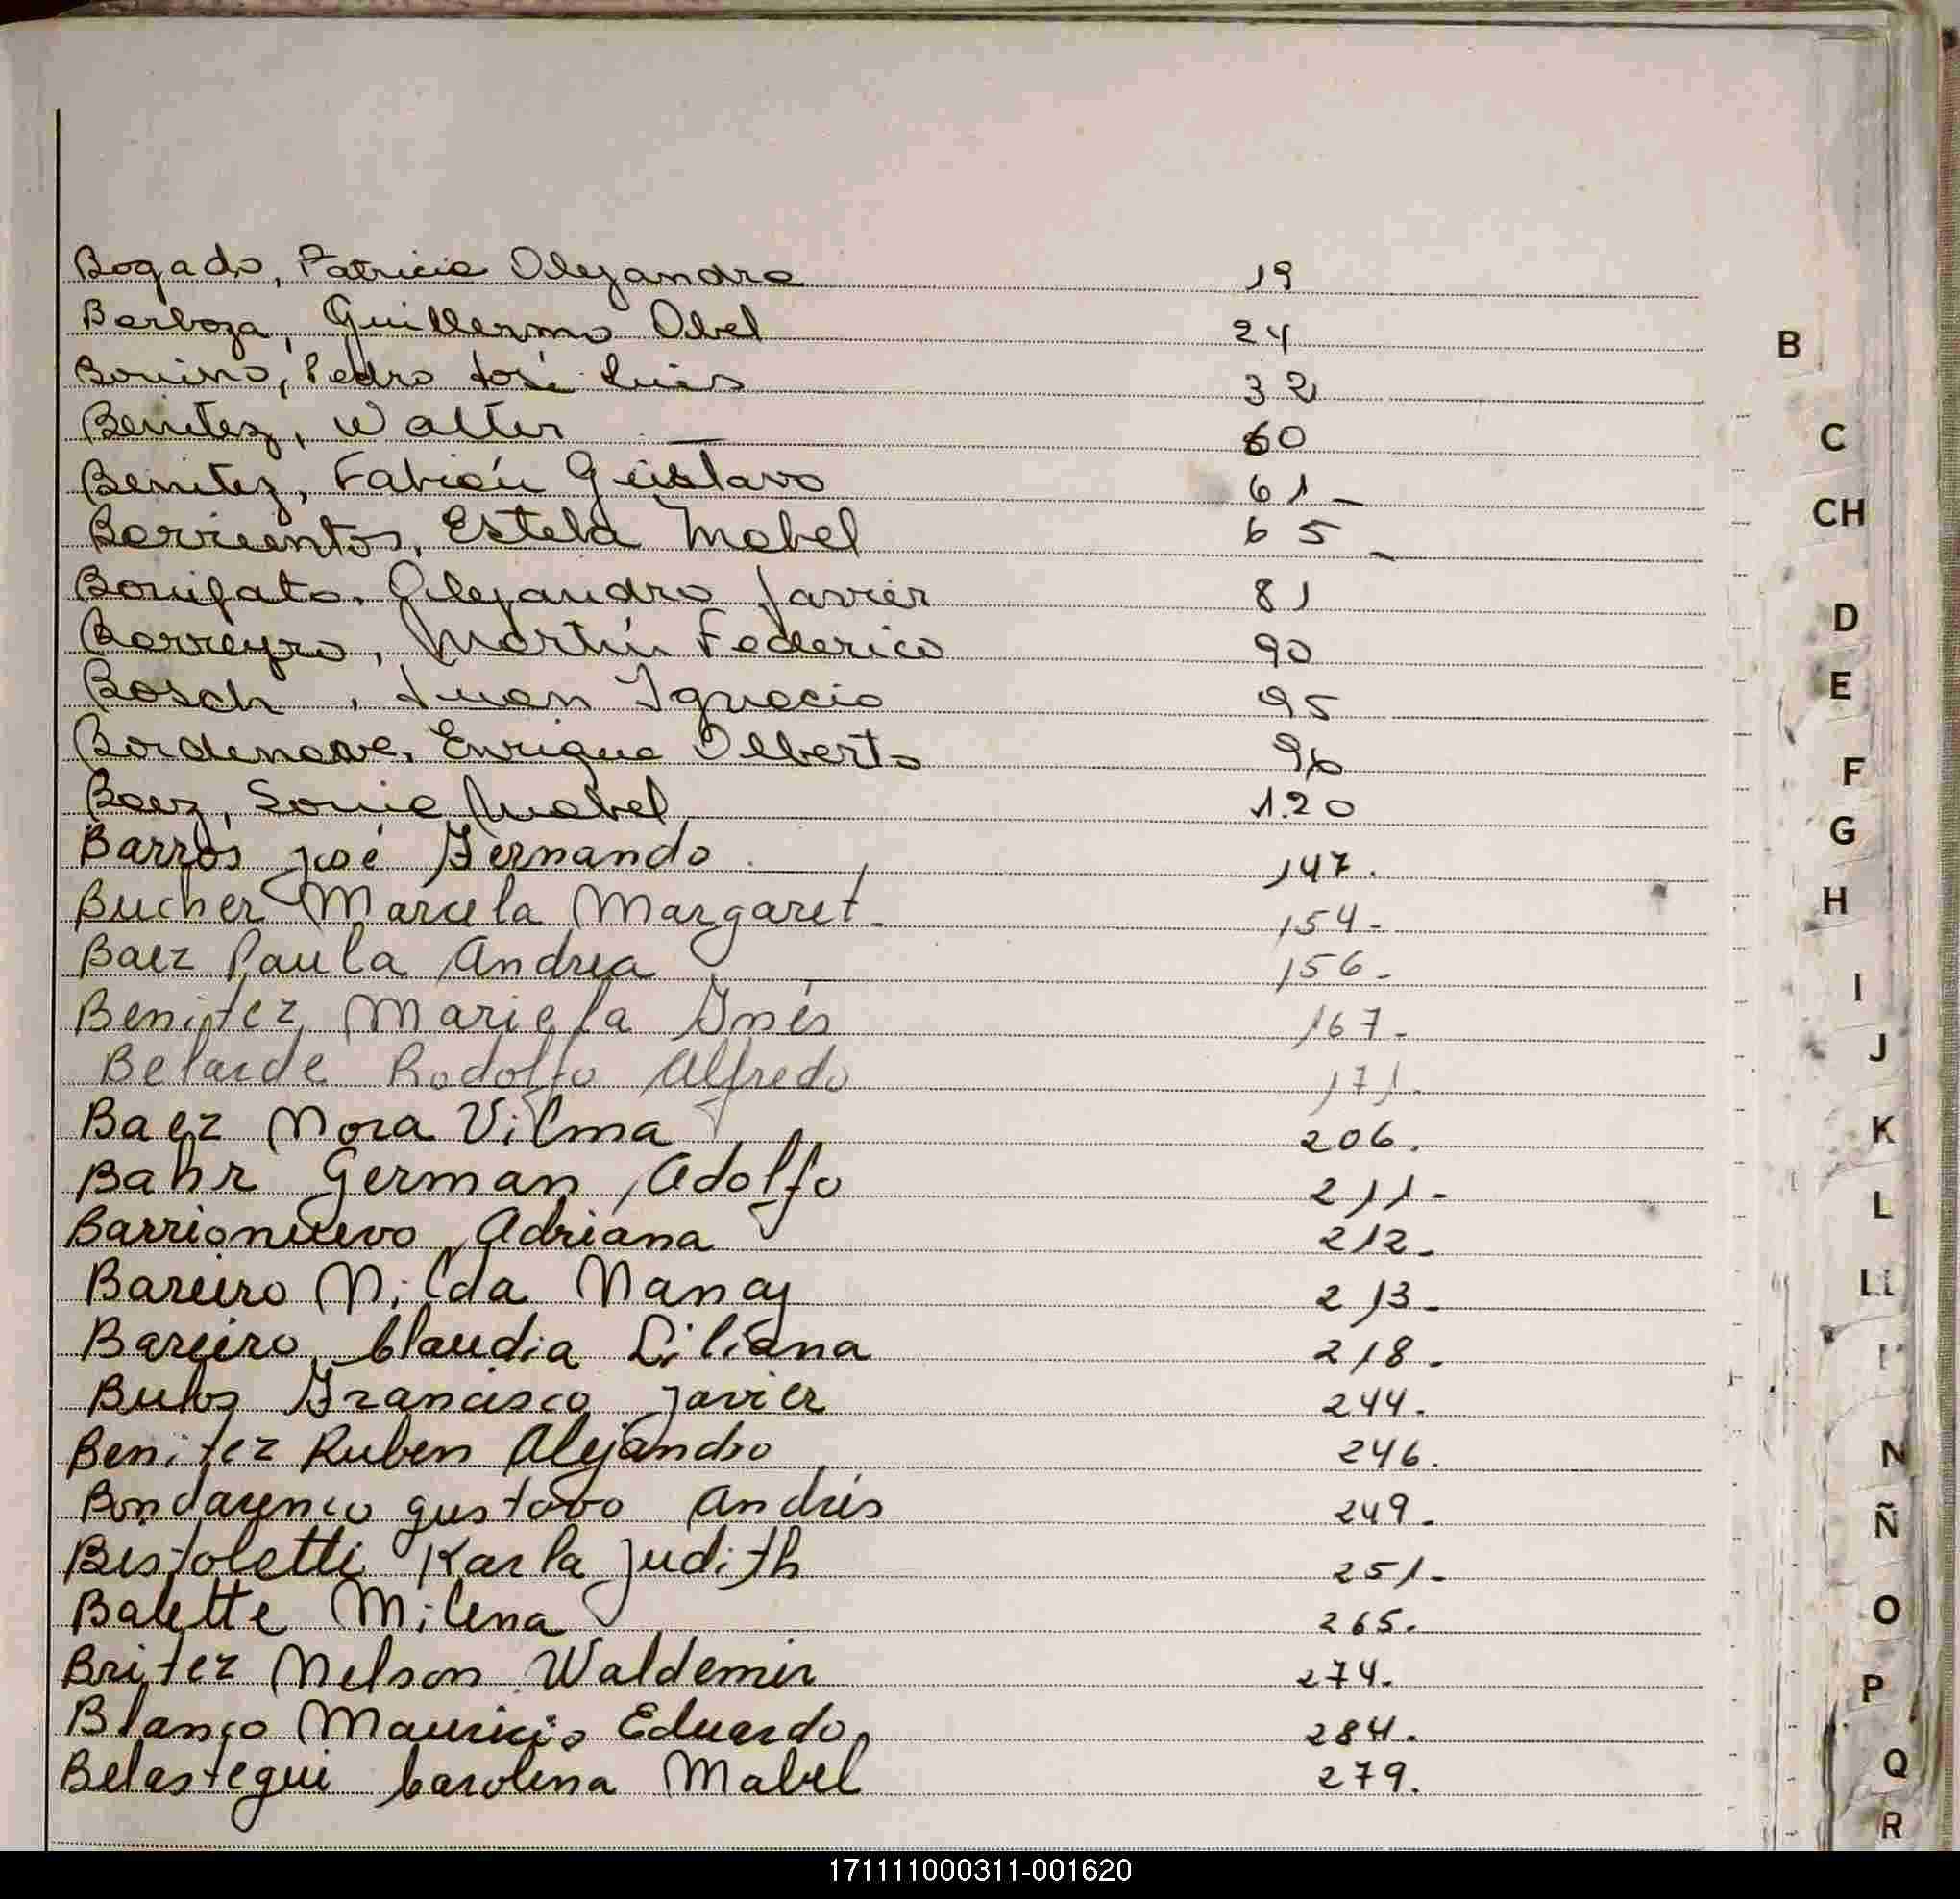 Bogado, Patricia Alejandra 19
Barboza, Guillermo Abel 24
Bonino, Pedro José Luis 32
Benitez, Walter — 60
Benitez, Fabián Gustavo 61 -
Barrientos, Estela Mabel 65 -
Bonifato, Alejandro Javier 81
Barreyro, Martín Federico 90
Bosch, Juan Ignacio 95
Bordenave, Enrique Alberto 96
Baez, Sonia Mabel 120
Barros José Fernando 147.
Bucher Marcela Margaret. 154-
Baez Paula Andrea 156-
Benitez Mariela Inés 167-
Belarde Rodolfo Alfredo 171.
Baez Nora Vilma 206.
Bahr German Adolfo 211-
Barrionuevo Adriana 212-
Bareiro Nilda Nancy 213-
Bareiro Claudia Liliana 218.
Bulos Francisco Javier 244.
Benitez Ruben Alejandro 246.
Bondarenco Gustavo Andrés 249.
Bistoletti Karla Judith 251-
Balette Milena 265.
Britez Nelson Waldemir 274.
Blanco Mauricio Eduardo 284.
Belastegui Carolina Mabel 279.
B
C
CH
D
E
F
G
H
I
J
K
L
LL
N
Ñ
O
P
Q
R
171111000311-001620